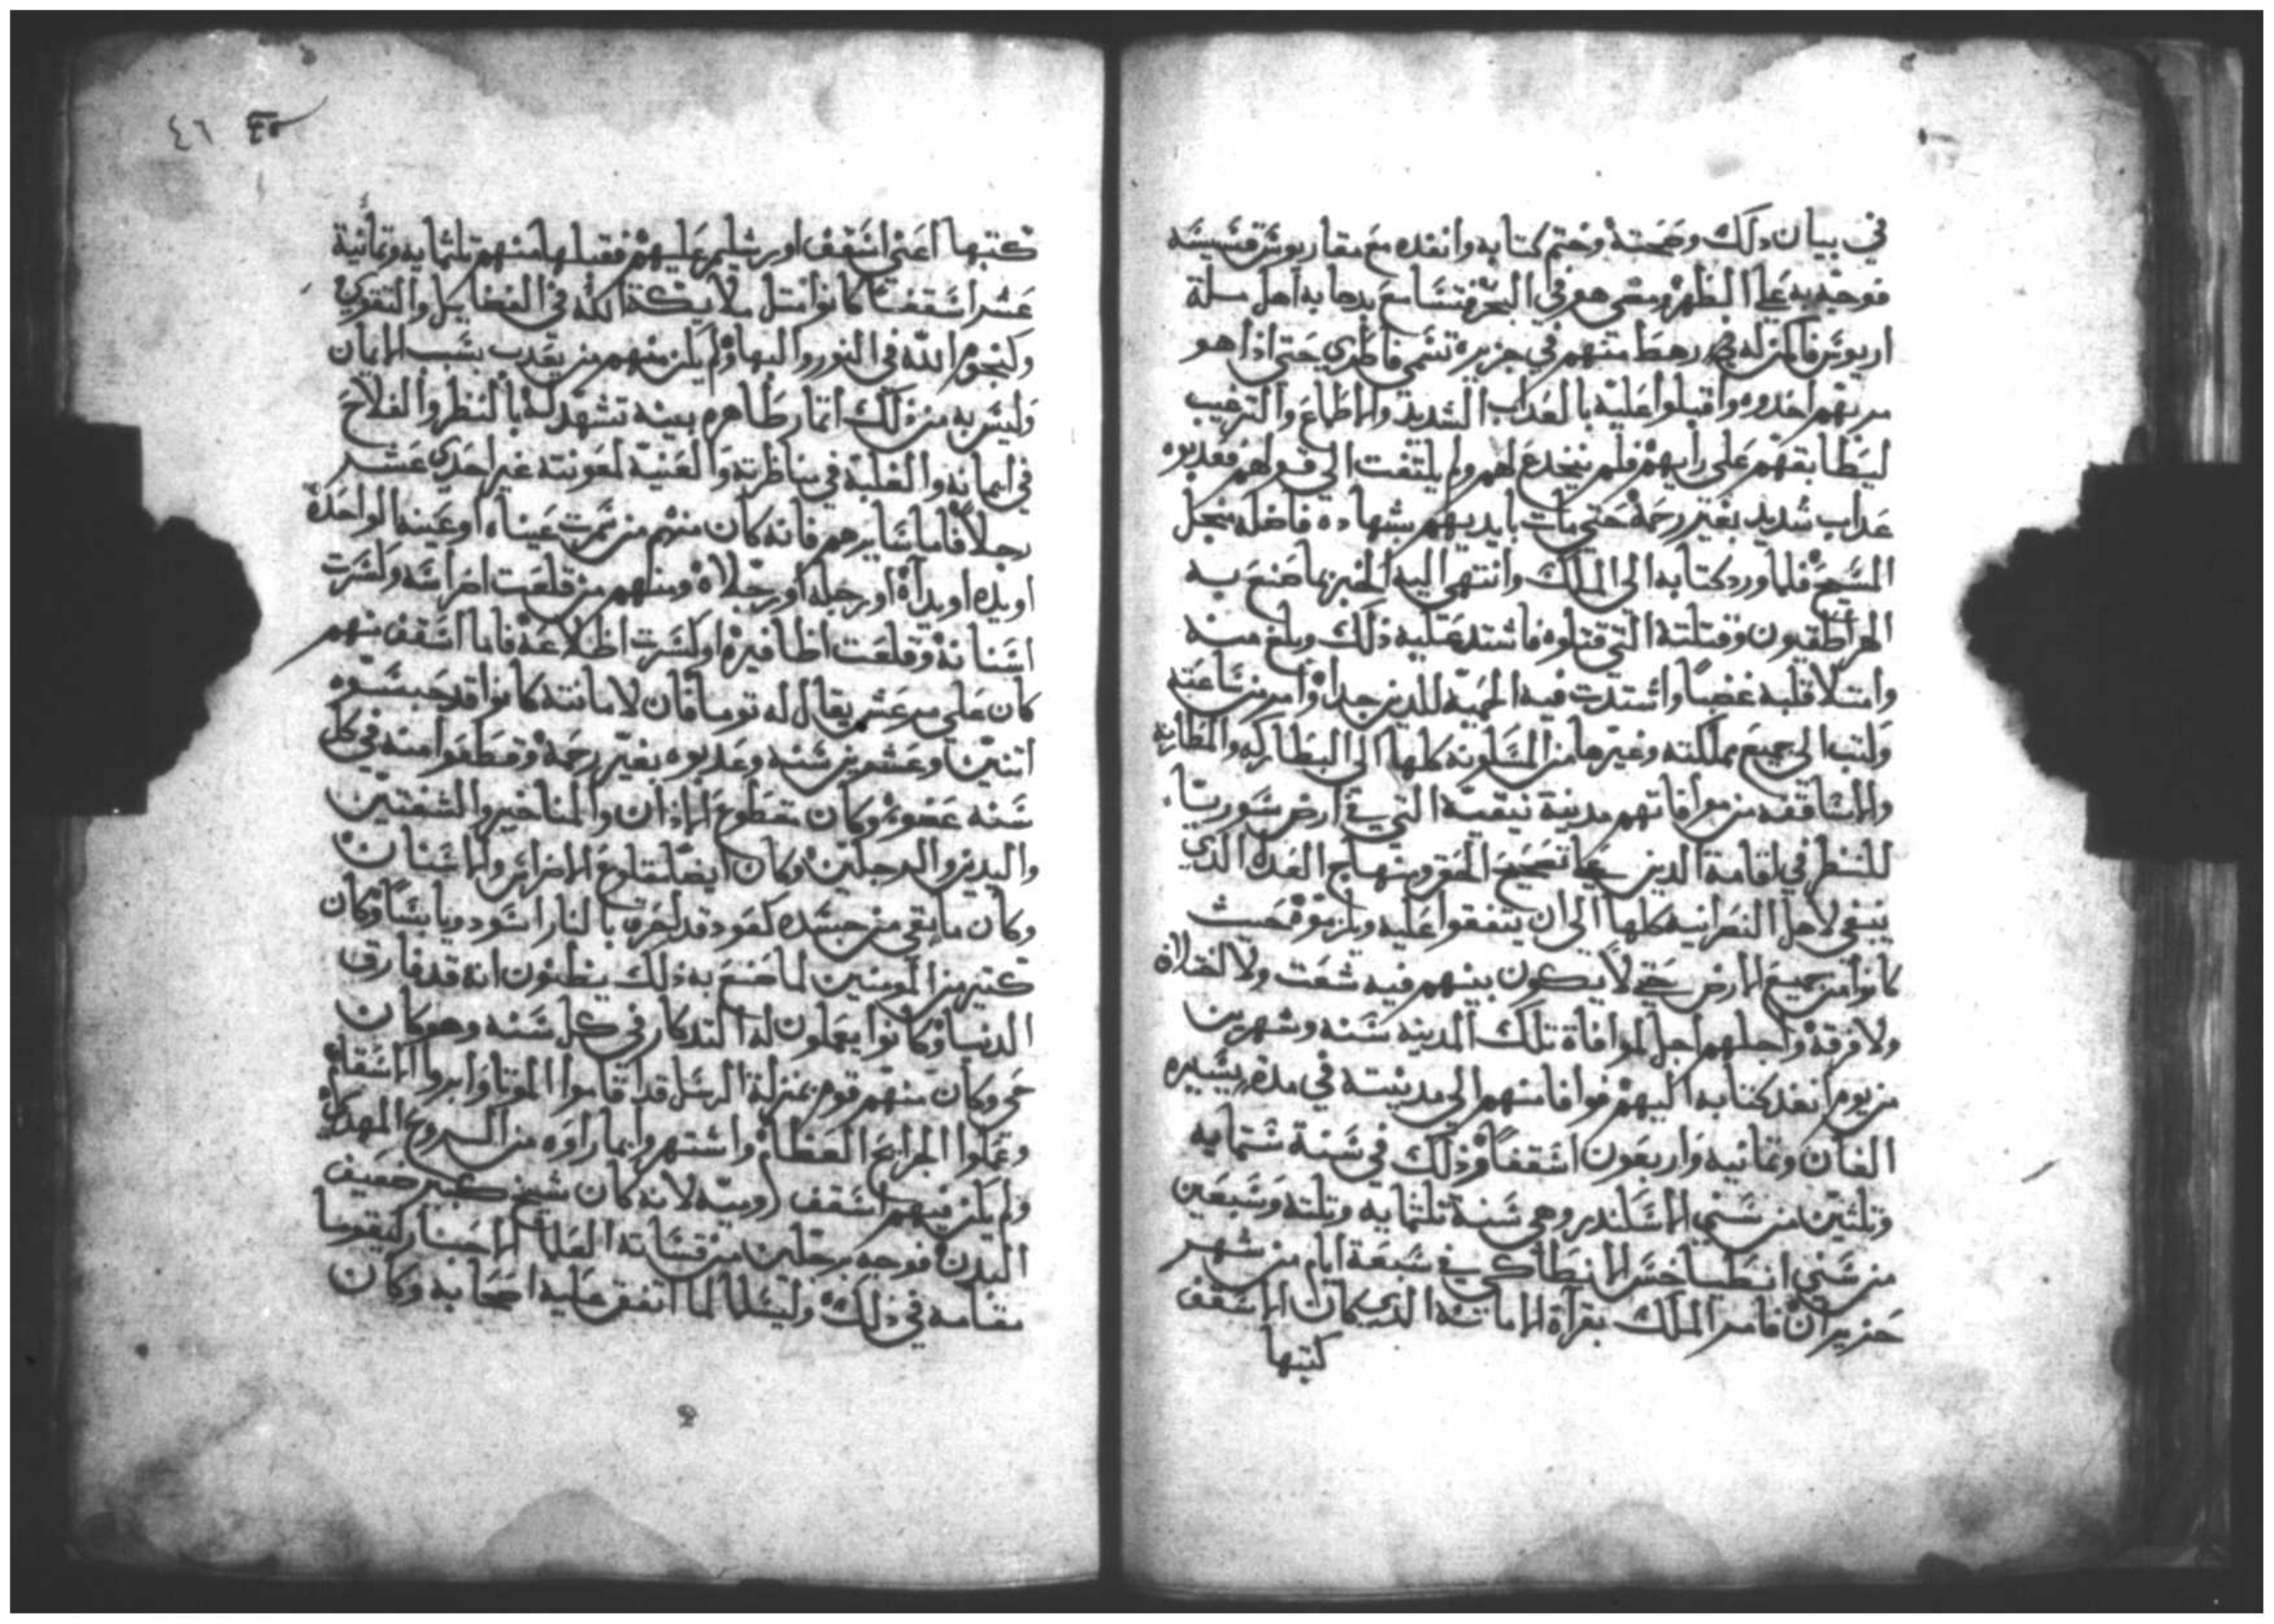 في بيان دلك وصحته وختم كتابه وانفده مع مقاريوس قسيسه
فوجه به علي الظهر ومضي هو في البحر فتسامع بدهابه اهل مسلة
اريوس فاكمن له رهط منهم في جزيره تسمي حتي اذا هو
مر بهم اخدوه واقبلوا عليه بالعداب الشديد والاطماع والترغيب
ليطابقهم علي رايهم فلم ينخدع لهم ولم يلتفت الي قولهم فعدبوه
عداب شديد بغير رحمة حتي مات بايديهم بشهاده فاضله من اجل
المسيح فلما ورد كتابه الي الملك وانتهي اليه الخبر بما صنع به
الهراطقيون وقتلته التي قتلوه فاشتد عليه ذلك وبلغ منه
وامتلا قلبه غضبا واشتدت فيه الحميه للدين جدا وامر من ساعته
وكتب الي جميع مملكته وغيرها من المسكونه كلها الي البطاركه والمطارنه
والاساقفه من موافاتهم مدينة نيقية التي في ارض سوريا
للنظر في اقامة الدين علي تصحيح الحق ومنهاج العدل الدي
ينبغي لاهل النصرانيه كلها الي ان يتفقوا عليه ويلزموه حيث
كانوا من جميع الارض حتي لا يكون بينهم فيه شغب ولا اختلاف
ولا فرقة واجلهم اجل لموافاة تلك المدينه سنه وشهرين
من يوم انفد كتابه اليهم فوافا منهم الي مدينته في مدة يسيره
الفان وثمانيه واربعون اسقفا وذلك في سنة ستمايه
وثلثين من سني الاسكندر وهي سنة ثلثمايه وثلثه وسبعين
من سني انطياخس الانطاكي في سبعة ايام من شهر
حزيران فامر الملك بقراة الامانة الدي كان الاسقف
كتبها
٤٦
كتبها اعني اسقف اورشليم عليهم فقبلها منهم ثلثمايه وثمانية
عشر اسقفا كانوا مثل ملايكة الله في الفضايل والتقوي
وكنجوم الله في النور والبها ولم يكن منهم من يعدب بسبب الايمان
وليس به من ذلك اثار ظاهره بينه تشهد له بالنظر والفلاح
في ايمانه والغلبة في مناظرته والغنية لمعونته غير احدي عشر
رجلا فاما سايرهم فانه كان منهم من سمرت عيناه او عينه الواحدة
او يده او يداه او رجله او رجلاه ومنهم من قلعت اضراسه وكسرت
اسنانه وقلعت اظافيره او كسرت اظلاعه فاما اسقف منهم
كان علي مرعش يقال له توما فان لامانته كانوا قد حبسوه
اثنين وعشرين سنه وعدبوه بغير رحمة وقطعوا منه في كل
سنه عضو وكان مقطوع الادان والمناخير والشفتين
واليدين والرجلين وكان ايضا مقلوع الاضراس والاسنان
وكان ما بقي من جسده كعود قد احرق بالنار اسود ويابسا وكان
كثير من المومنين لما صنع به ذلك يظنون انه قد فارق
الدنيا وكانوا يعملون له التدكار في كل سنه وهو كان
حي وكان منهم قوم بمنزلة الرسل قد اقاموا الموتا وابروا الاسقام
وعملوا الجرايح العظام واشتهروا بما راوه من السروح المهدكة
ولم يكن فيهم اسقف روميه لانه كان شيخ كبير ضعيف
البدن فوجه برجلين من قساته العلما الاحبار ليقوما
مقامه في ذلك وليسلما لما اتفق عليه اصحابه وكان